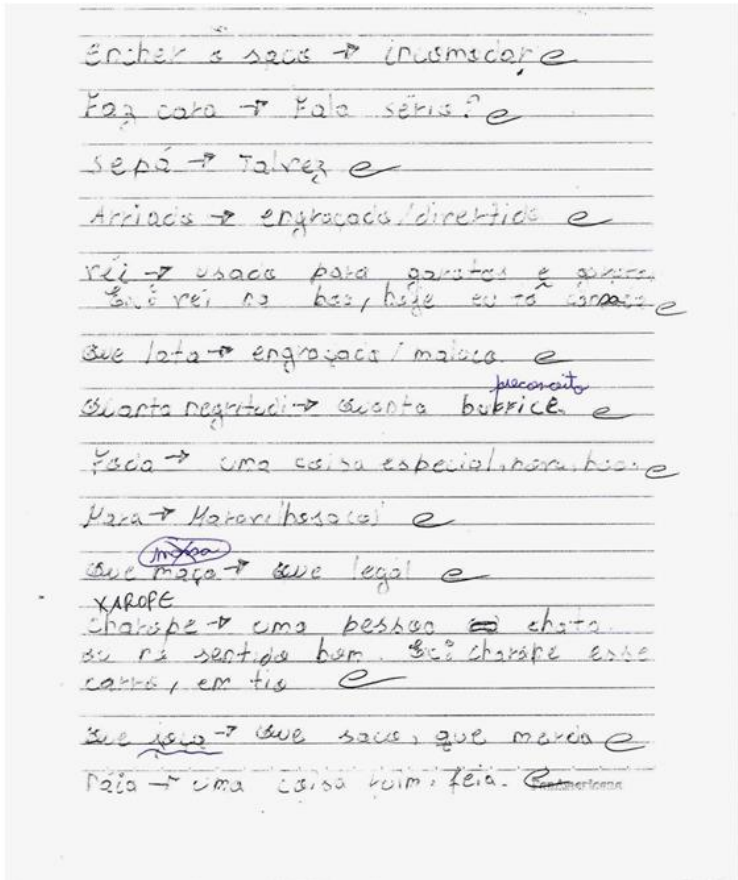 Encher o saco → incomodar
Faz cara → Fala sério?
Sepá → Talvez
Arriado → engraçado/divertido
véi → usado para garotos e
véi na boa, hoje eu tô
Que lata → engraçado / maluco.
preconceito
Quanta negritudi → Quanta burrice
Foda → uma coisa especial, nova, boa.
Mara → Maravilhoso(a)
massa
Que maça → Que legal
XAROPE
Charope → uma pessoa chata
ou no sentido bom. charope esse
carro, em tio
Que joça → Que saco, que merda
ráia → uma coisa ruim, feia.
PanAmericana